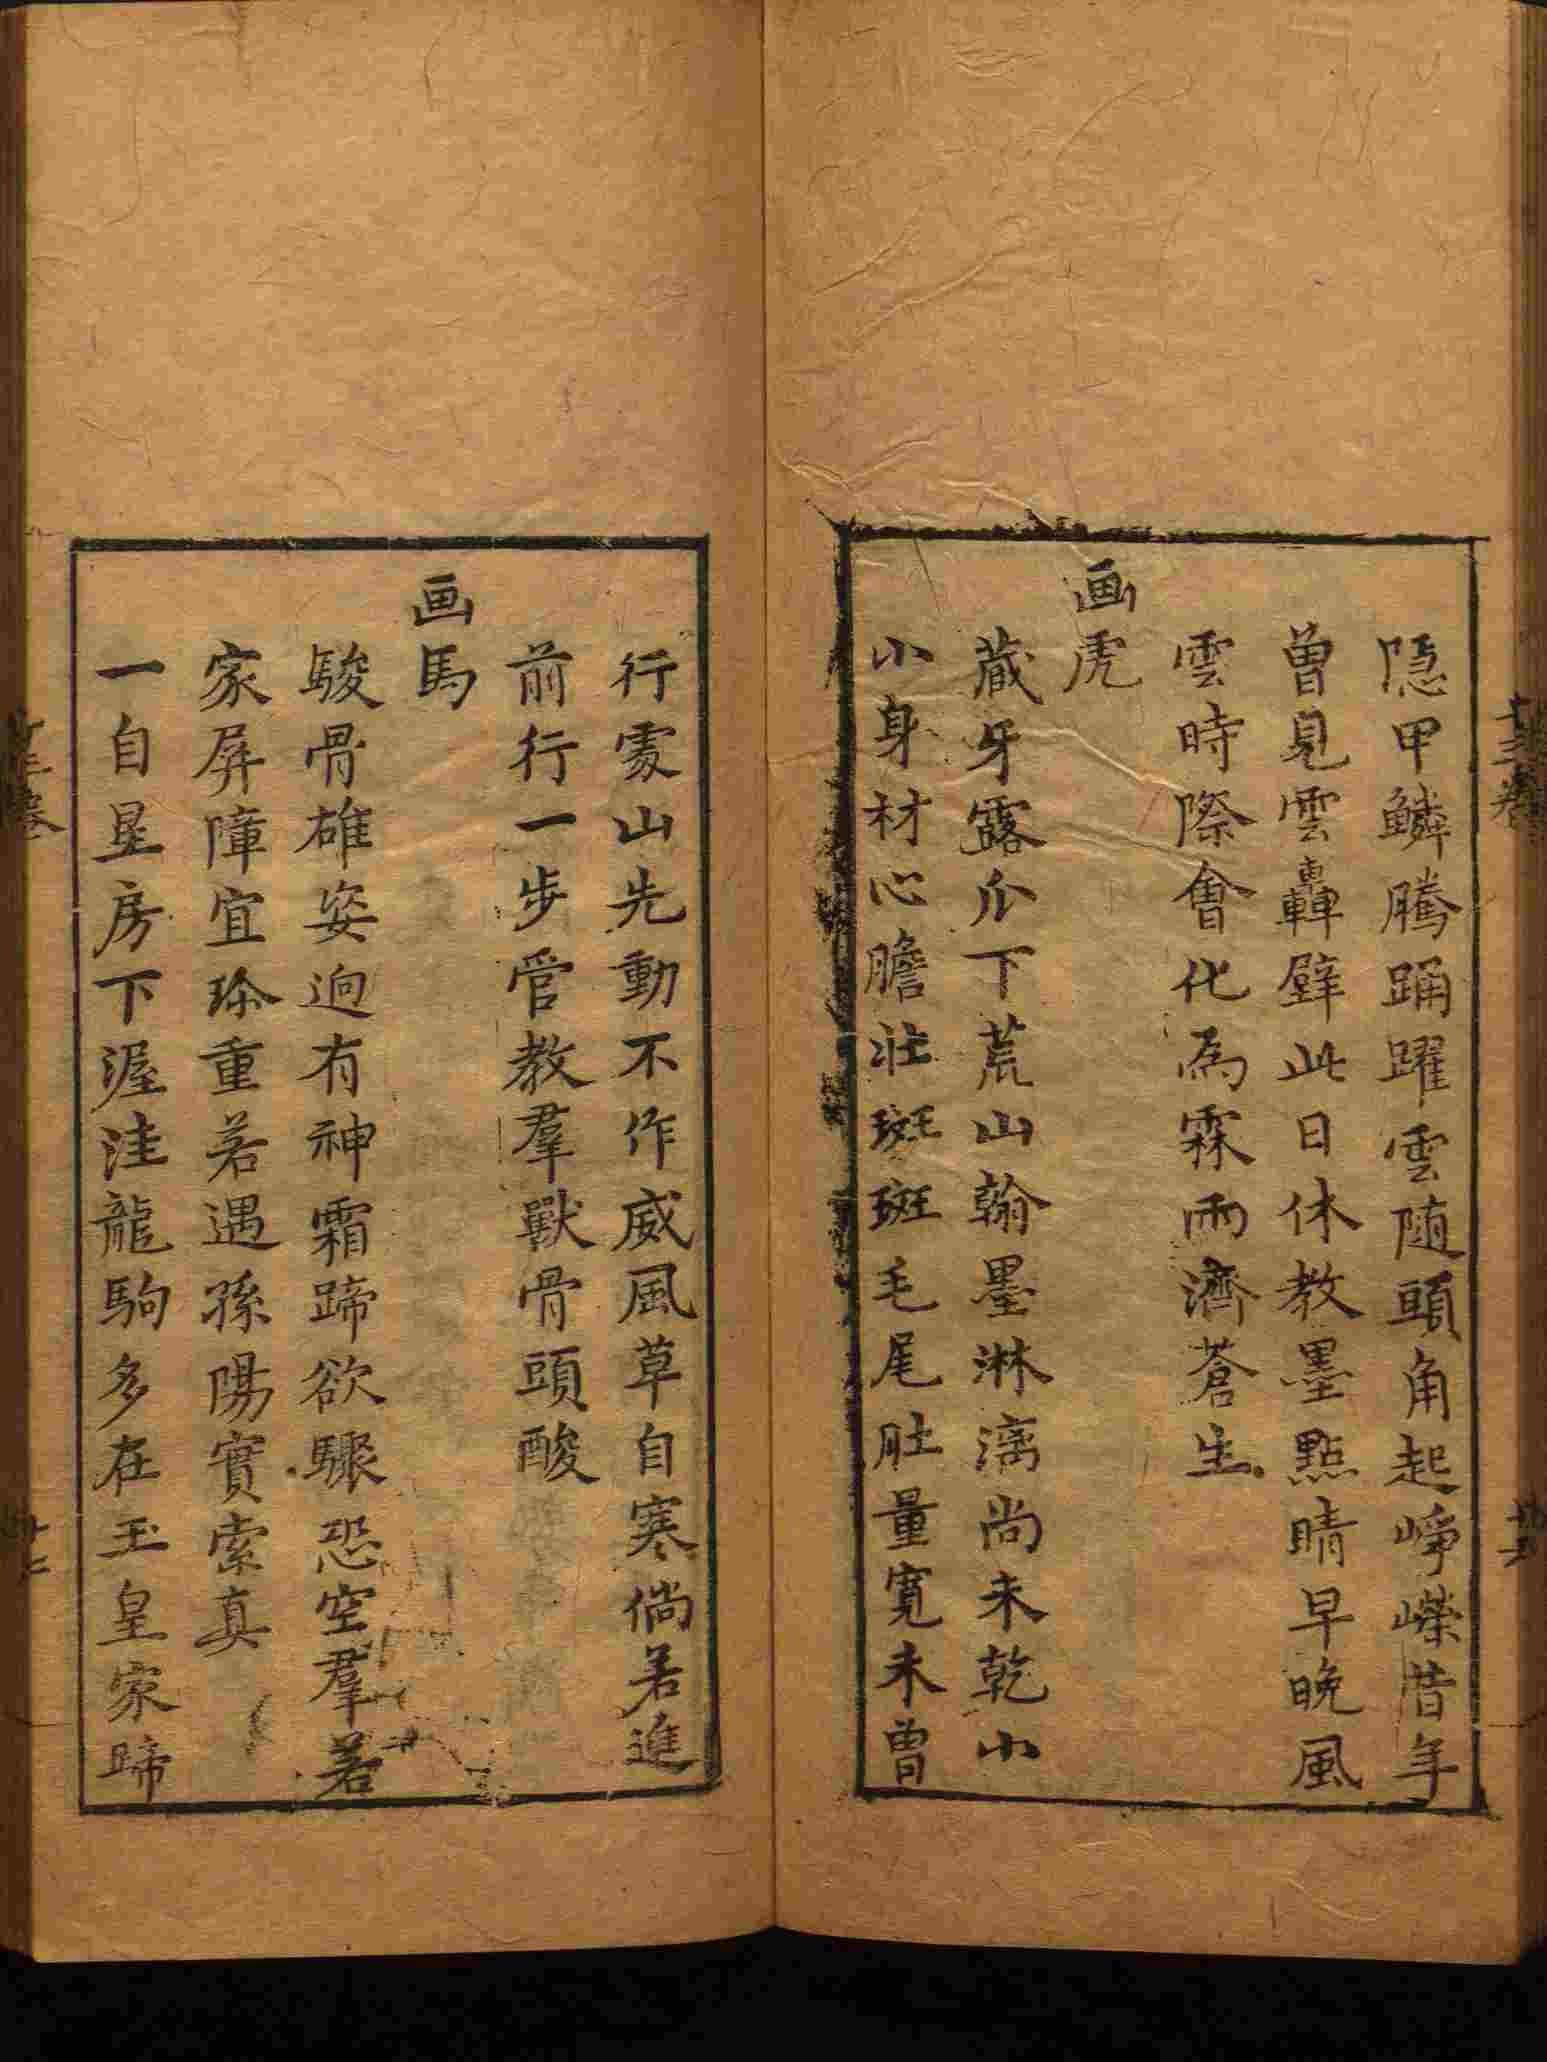 隠甲鱗騰踊躍雲随頭角起崢嶸昔年
曾見雲轟壁此日休教墨點睛早晚風
雲時際會化為霖雨濟蒼生
画虎
蔵牙露爪下荒山翰墨淋漓尚未乾小
小身材心膽壯斑斑毛尾肚量寛未曾
行處山先動不作威風草自寒倘若進
前行一步管教羣獸骨頭酸
画馬
駿骨雄姿逈有神霜蹄欲驟恐空羣若
家屏障宜珎重若遇孫陽實索真
一自星房下渥洼龍駒多在玉皇家蹄
十三卷